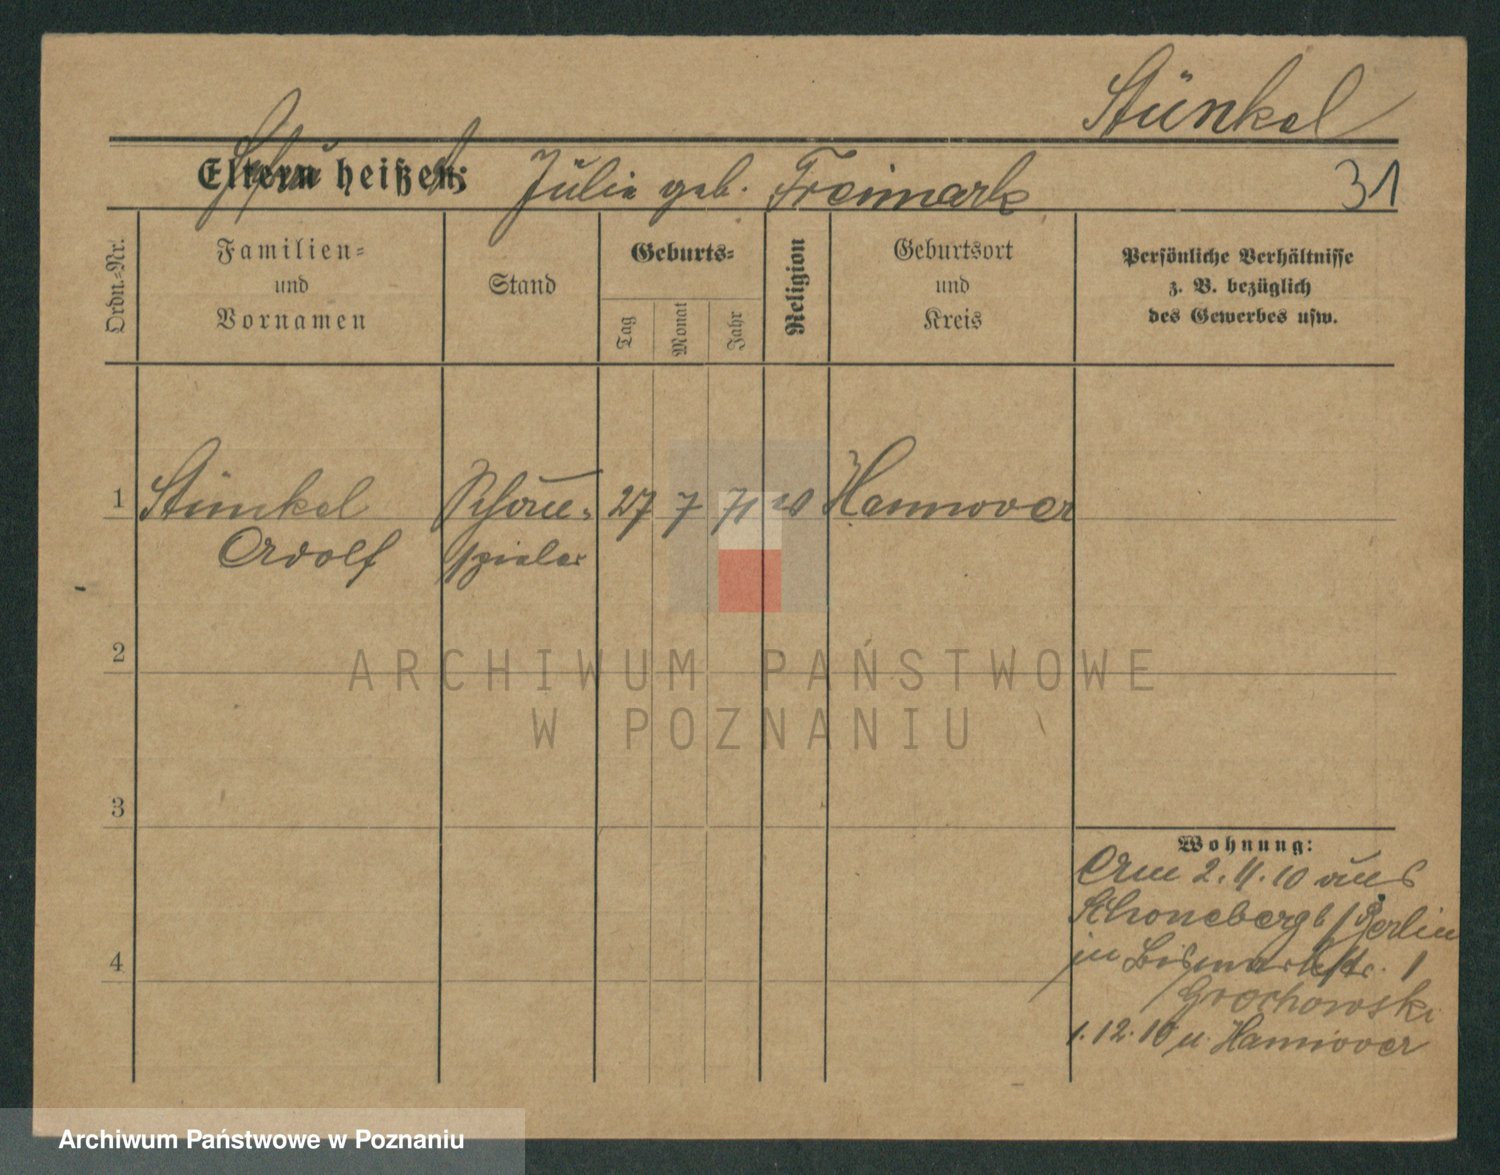 Stünkel
Eltern heißen: Julie geb. Freimark 31
Ordn.-Nr.
Familien-
und
Vornamen
Stand
Geburts-
Tag
Monat
Jahr
Religion
Geburtsort
und
Kreis
Persönliche Verhältnisse
z. B. bezüglich
des Gewerbes usw.
1 Stünkel Schau- 27 7 71 Hannover
Adolf spieler
2
ARCHIWUM PAŃSTWOWE
W POZNANIU
3
Wohnung:
Am 2.11.10 aus
Schöneberg b/Berlin
in Bismarckstr. 1
4
Grochowski
1.12.10 n. Hannover
Archiwum Państwowe w Poznaniu